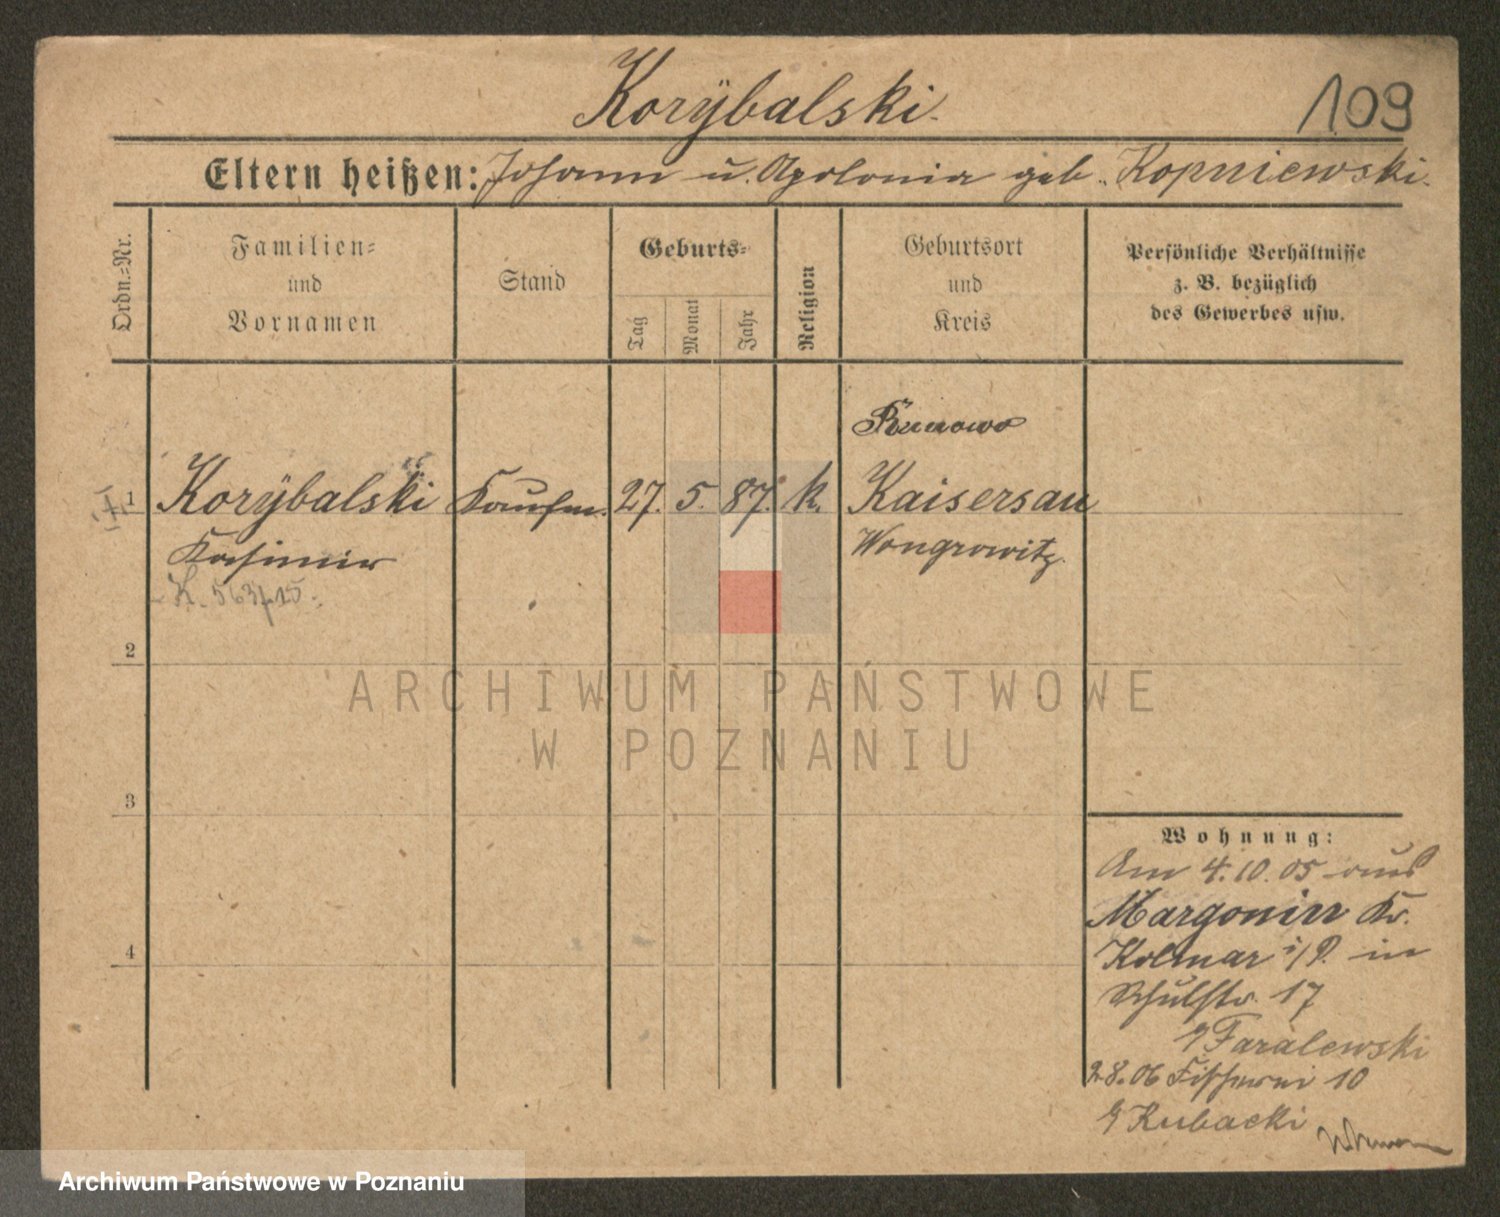 Korÿbalski.
109
Eltern heißen: Johann u. Apolonia geb. Kopniewski.
Ordn.=Nr.
Familien=
und
Vornamen
Stand
Geburts=
Tag
Monat
Jahr
Religion
Geburtsort
und
Kreis
Persönliche Verhältnisse
z. B. bezüglich
des Gewerbes usw.
Runowo
1 Korÿbalski Kaufm. 27. 5. 87. k. Kaisersau
Kasimir Wongrowitz.
K. 563/15.
2
ARCHIWUM PAŃSTWOWE
W POZNANIU
3
Wohnung:
Am 4.10.05 aus
Margonin Kr.
Kolmar i/P. in
Schulstr. 17
Faralewski
4
2.8.06 Fischerei 10
Kubacki
Archiwum Państwowe w Poznaniu